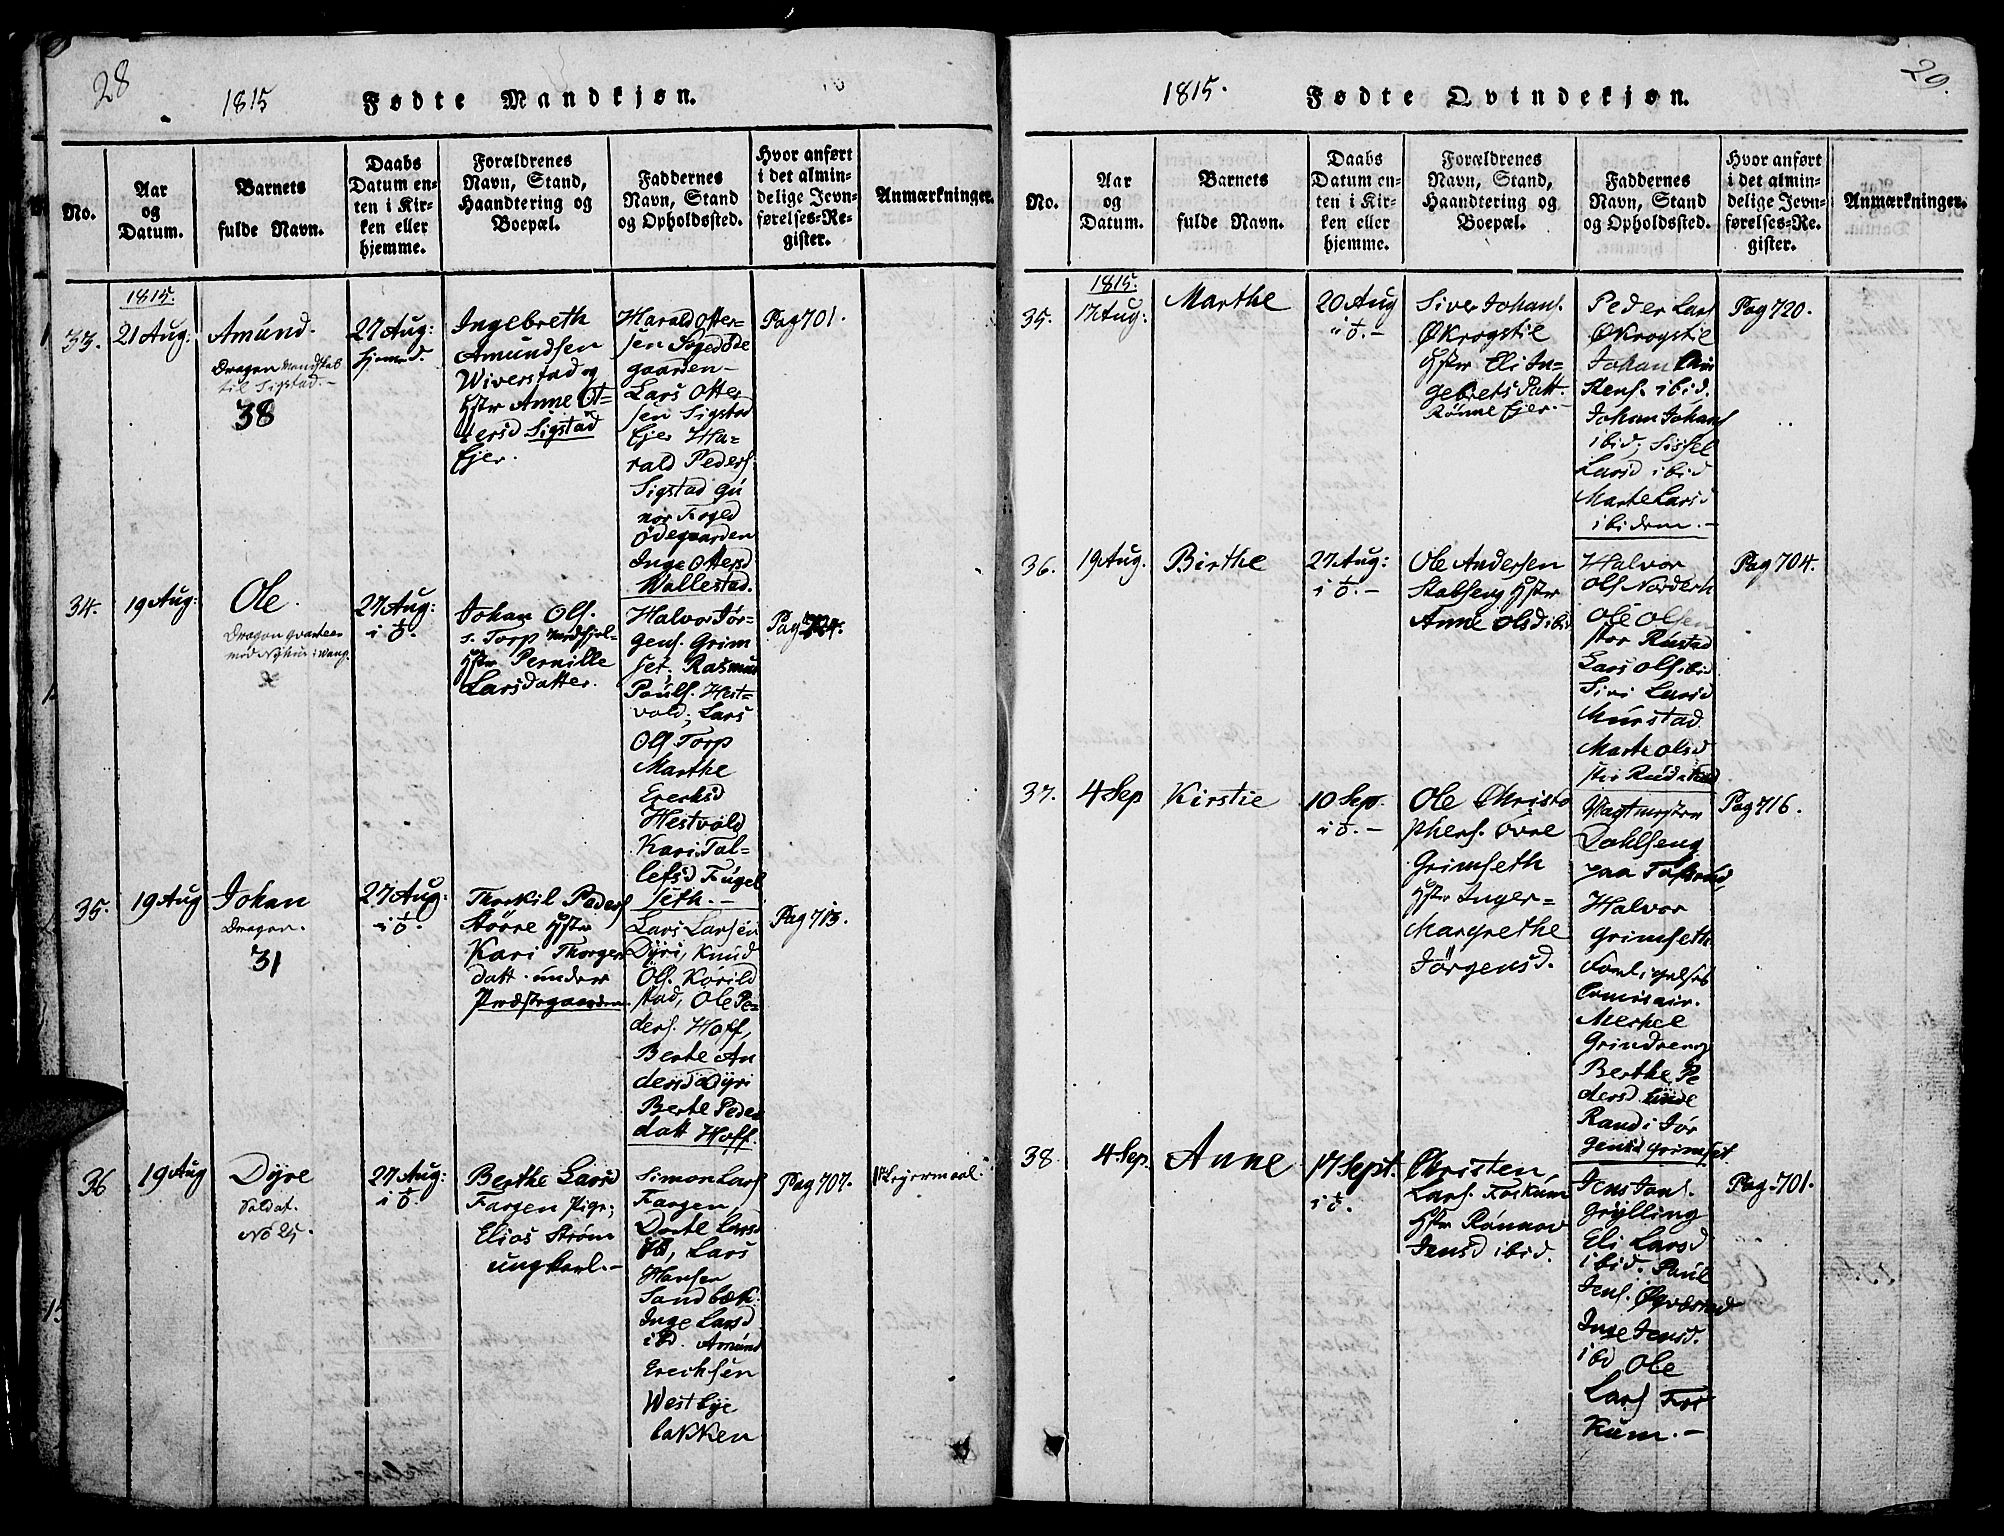 28
1815 Fødte Mandkjøn.
No.
Aar
og
Datum.
Barnets
fulde Navn.
Daabs
Datum en-
ten i Kir-
ken eller
hjemme.
Forældrenes
Navn, Stand,
Haandtering og
Boepæl.
Faddernes
Navn, Stand
og Opholdssted.
Hvor anført
i det almin-
delige Jevn-
førelses-Re-
gister.
Anmærkninger.
1815.
33.
21 Aug:
Amund.
Dragon Mandskab
til Sigstad.-
38
27 Aug:
hjemed.
Ingebreth
Amundsen
Wiverstad og
Hstr Anne Ot-
tersd Sigstad
Ejer.
Harald Otter-
sen
gaarden-
Lars Otter
sen Sigstad
Ejer Ha-
rald Peders.
Sigstad Gu
nor
Ødegaarden
Inge Ottersd
Wallestad.
Pag 701.
34.
19 Aug:
Ole.
Dragon
27 Aug:
i
Johan Ols.
s. Torp
Hstr Pernille
Larsdatter.
Halvor Jør-
gens. Grim
set, Rasmus
Pouls. Hest-
vold; Lars
Ols Torp
Marthe
Erecksd
Hestvold
Kari Tol-
lefsd Fugel
seth.-
Pag
35.
19 Aug
Johan
Dragon.
31
27 Aug:
i
Thorkil Peders
Større Hstr
Kari Thorger
datt. under
Præstegaarden
Lars Larsen
Dyri, Knud
Ols. Korild
stad, Ole Pe-
ders. Hoff,
Berte An
dersd Dyri
Berte Peders
datt Hoff.
Pag 713.
36
19 Aug
Dyre
Soldat.
No 25.
27 Aug:
i
Berthe Larsd
Fargen Pige;
Elias Strøm
ungkarl.-
Simon Lars
Fargen,
Dorte Larsd
ibd, Lars
Hansen
Sandbæk.
Inge Larsd
ibd. Amund
Ericksen
Westbye
bakken
Pag 707.
Lejermaal.
29.
1815. Fødte Qvindekjøn.
No.
Aar
og
Datum.
Barnets
fulde Navn.
Daabs
Datum en-
ten i Kir-
ken eller
hjemme.
Forældrenes
Navn, Stand,
Haandtering og
Boepæl.
Faddernes
Navn, Stand
og Opholdssted.
Hvor anført
i det almin-
delige Jevn-
førelses-Re-
gister.
Anmærkninger.
1815.
35.
17 Aug:
Marthe
20 Aug
Siver Johans.
Økrogstie
Hstr Eli In-
gebrets Datt.
Rønne Ejer.-
Peder Lars
Økrogstie
Johan
ibid.
Johan Johans
ibid; Sissel
Larsd ibid
Marte Larsd
ibidem.-
Pag 720.
36.
19 Aug.
Birthe
27 Aug:
i
Ole Andersen
Stabseng Hstr
Anne Olsd ibid
Halvor
Ols Norderh
Ole Olsen
stor Rustad
Lars Ols ibid
Siri Larsd
Murstad
Marte Olsd
Pag 704.
37.
4 Sep
Kirstie
10 Sep.
i
Ole Christo
phers. Øvre
Grimseth
Hstr Inger-
Margrethe
Jørgensd.
Vagtmester
Dahlseng
paa
Halvor
Grimseth
Forligelses
Comisair.
Merkel
Grindreng
Berthe Pe
dersd
Randi Jør
gensd Grimset.
Pag 716.
38
4 Sep.
Anne
17 Sept.
i
Christen
Lars. Foskum
Hstr Rønnov
Jensd ibid.
Jens Jens.
Grylling
Eli Larsd
ibid. Paul
Jens.
Inge Jensd.
ibd Ole
Lars Fos
kum.-
Pag. 701.